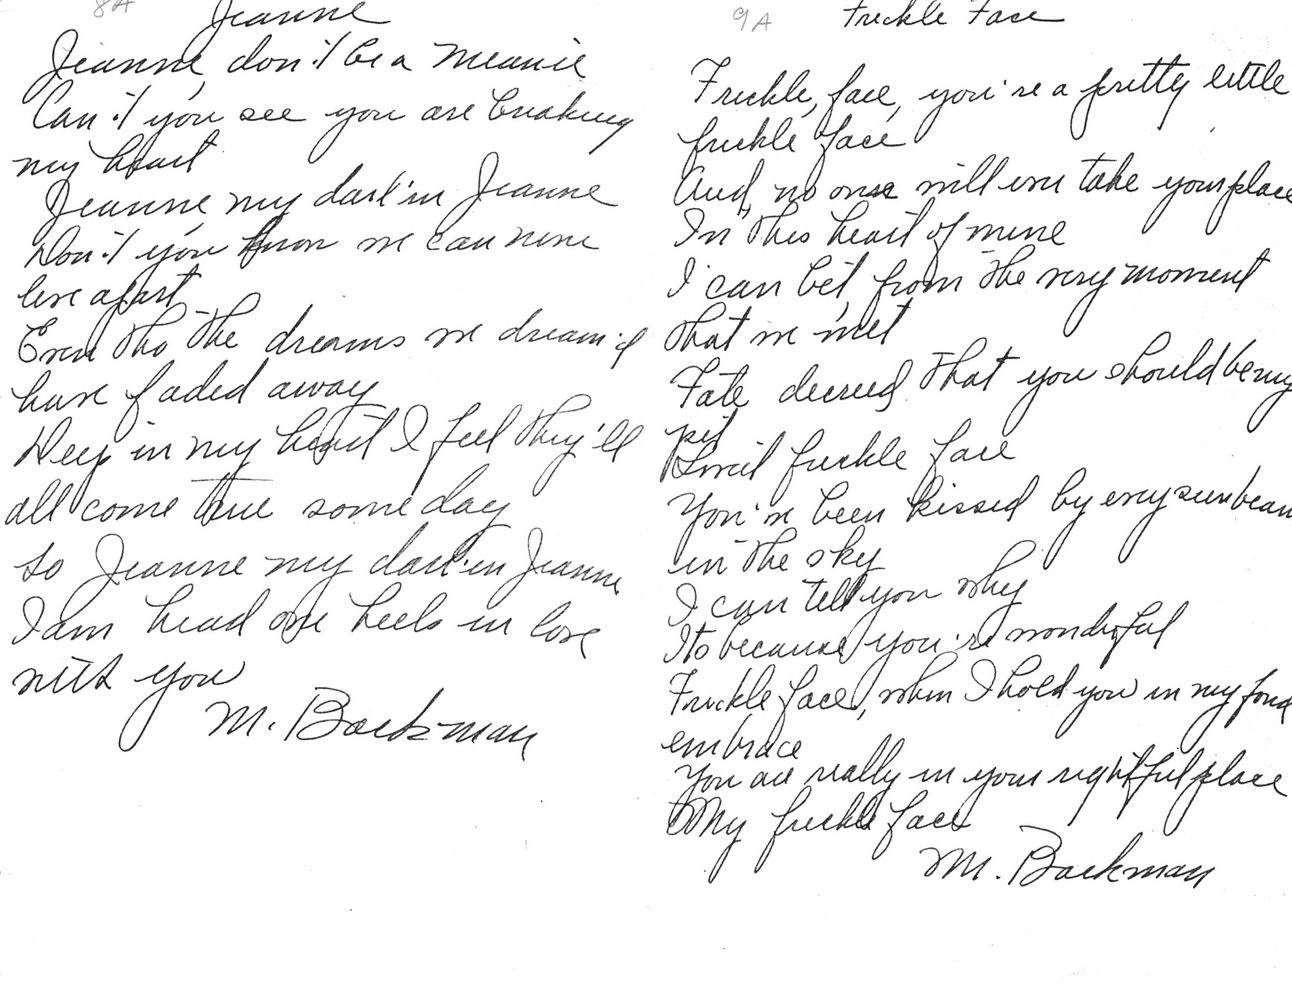 8A
Jeanne
Jeanne, don't be a meanie
Can't you see you are breaking
my heart
Jeanne my darl'in Jeanne
Don't you know we can never
live apart
Even tho the dreams we dream'd
have faded away
Deep in my heart I feel they'll
all come true some day
So Jeanne my darl'in Jeanne
I am head over heels in love
with you
M. Backman
9A
Freckle Face
Freckle, face, you're a pretty little
freckle face
And, no one will ever take your place
In this heart of mine
I can bet, from the very moment
that we met
Fate decreed that you should be my
pet
Sweet freckle face
You've been kissed by every sunbeam
in the sky
I can tell you why
Its because you're wonderful
Freckle face, when I hold you in my fond
embrace
You are really in your rightful place
My freckle face
M. Backman